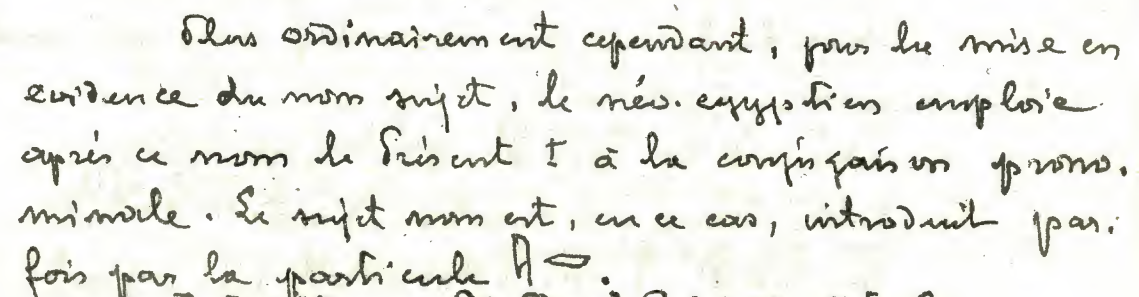 Plus ordinairement cependant, pour la mise en
évidence du nom sujet, le néo-égyptien emploie
après ce nom le Présent I à la conjugaison prono-
minale. Le sujet nom est, en ce cas, introduit par-
fois par la particule 𓇋𓂋.